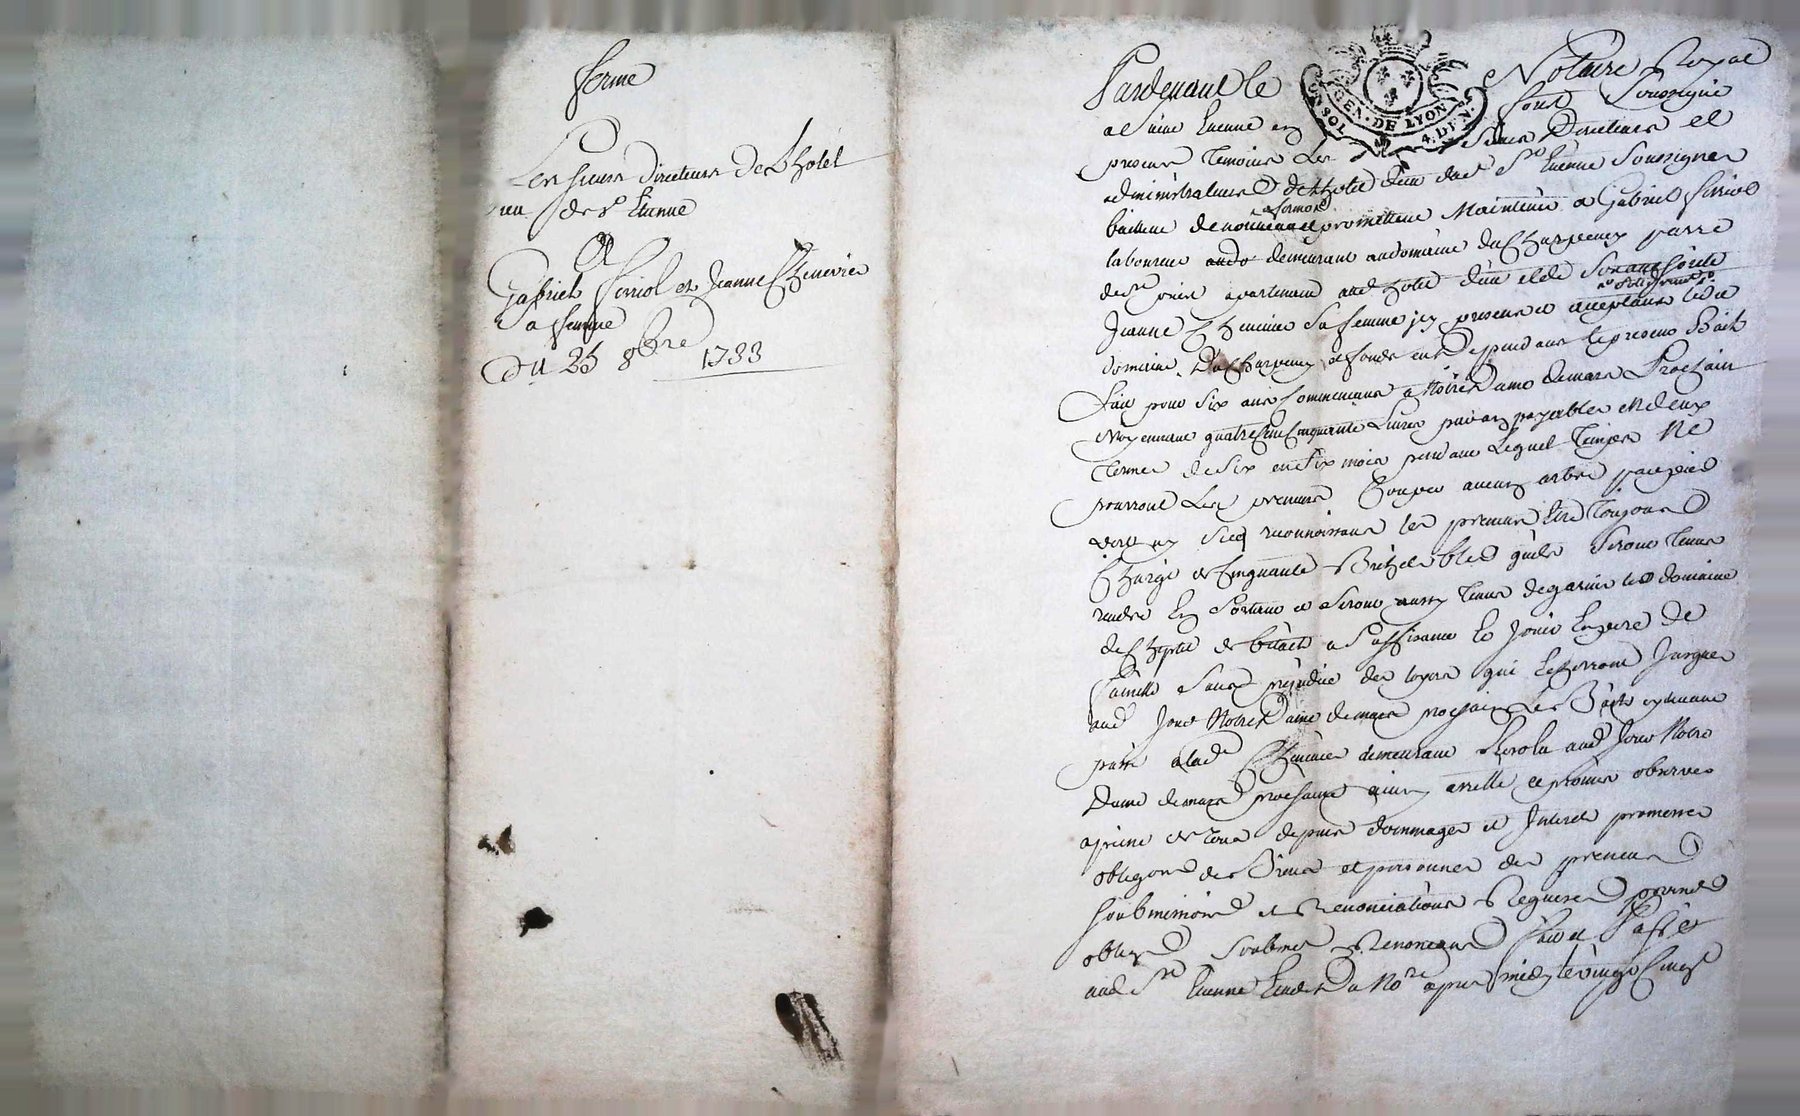 ferme
Les sieurs Directeurs De L hotel
Dieu de St Etienne
Et
Gabriel ferriol et Jeanne Chenevier
sa femme
Du 25 8bre 1733
GEN. DE LYON
4. DEN.
Pardevant le Notaire Royal
a St Etienne en fons Soussigné
presens temoins Les Sieurs Directeurs et
administrateurs De L'hotel dieu dud St Etienne Soussignes
baillent de nouveau a ferme promettent Maintenir a Gabriel ferriol
laboureur demeurant audomaine Du Charpeney
apartenant aud hotel dieu et de
Jeanne Chenevier Sa femme icy presens et acceptans led
domaine Du Charpeney et fonds en dependans le present Bail
fait pour Six ans Commencans a Notre dame de mars Prochain
Moyennant quatre Cens Cinquante Livres par an payables en deux
Termes de Six en Six mois pendant Lequel Temps Ne
pourront Les preneurs Couper aucun arbre par pied
vert ny Sec reconnoissans les preneurs Etre Toujours
Charges de Cinquante Bichets bled qu'ils Seront tenus
rendre En Sortant et Seront aussy tenus de garnir led domaine
de bétail a Suffisance Le Jouir En pere de
famille Sans prejudice des loyers qui Echerront Jusques
aud Jour Notre Dame de mars prochain Les Baux cydevant
passé alad Chenevier demeurant Resolu aud Jour Notre
Dame de mars prochain ainsy arresté et promis observer
a peine de tous depens dommages et Interets promesses
obligons des Biens et personnes des preneurs
Soubmissions et Renonciations Requises
obligé Soubmis Renoncans fait et Passé
aud St Etienne Etude du No.re apres midy le vingt Cinq